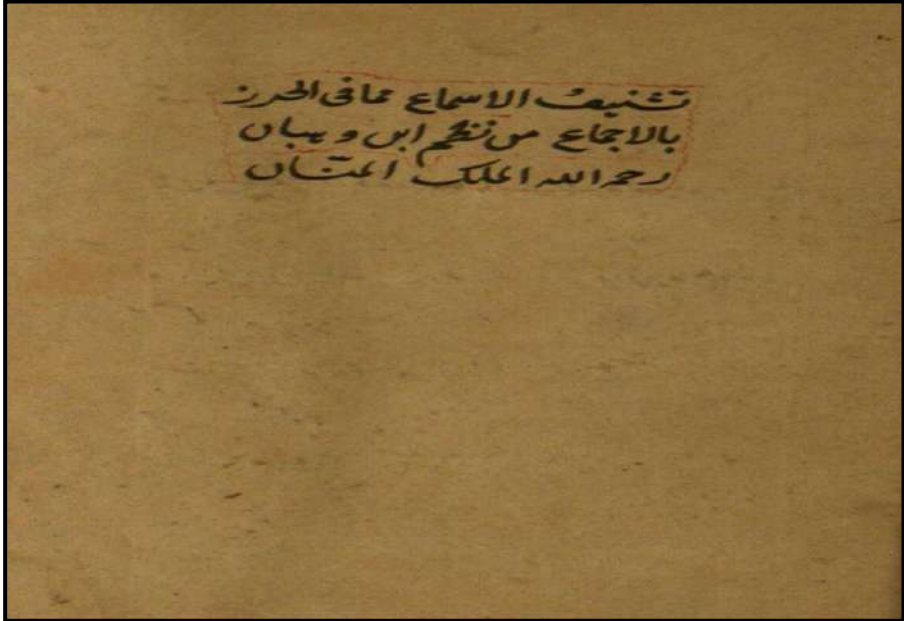 تشنيف الاسماع مما فى الحرز
بالاجماع من نظم ابن وهبان
رحمه الله الملك المنان